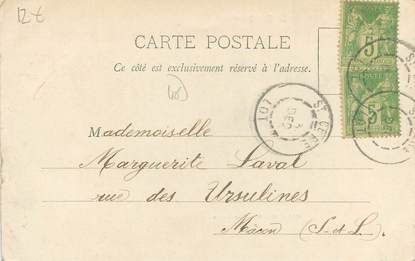 12 €
CARTE POSTALE
Ce côté est exclusivement réservé à l'adresse.
5
5
ST CÉRÉ
LOT
Mademoiselle
Marguerite Laval
rue des Ursulines
Mâcon (S-et-L.)